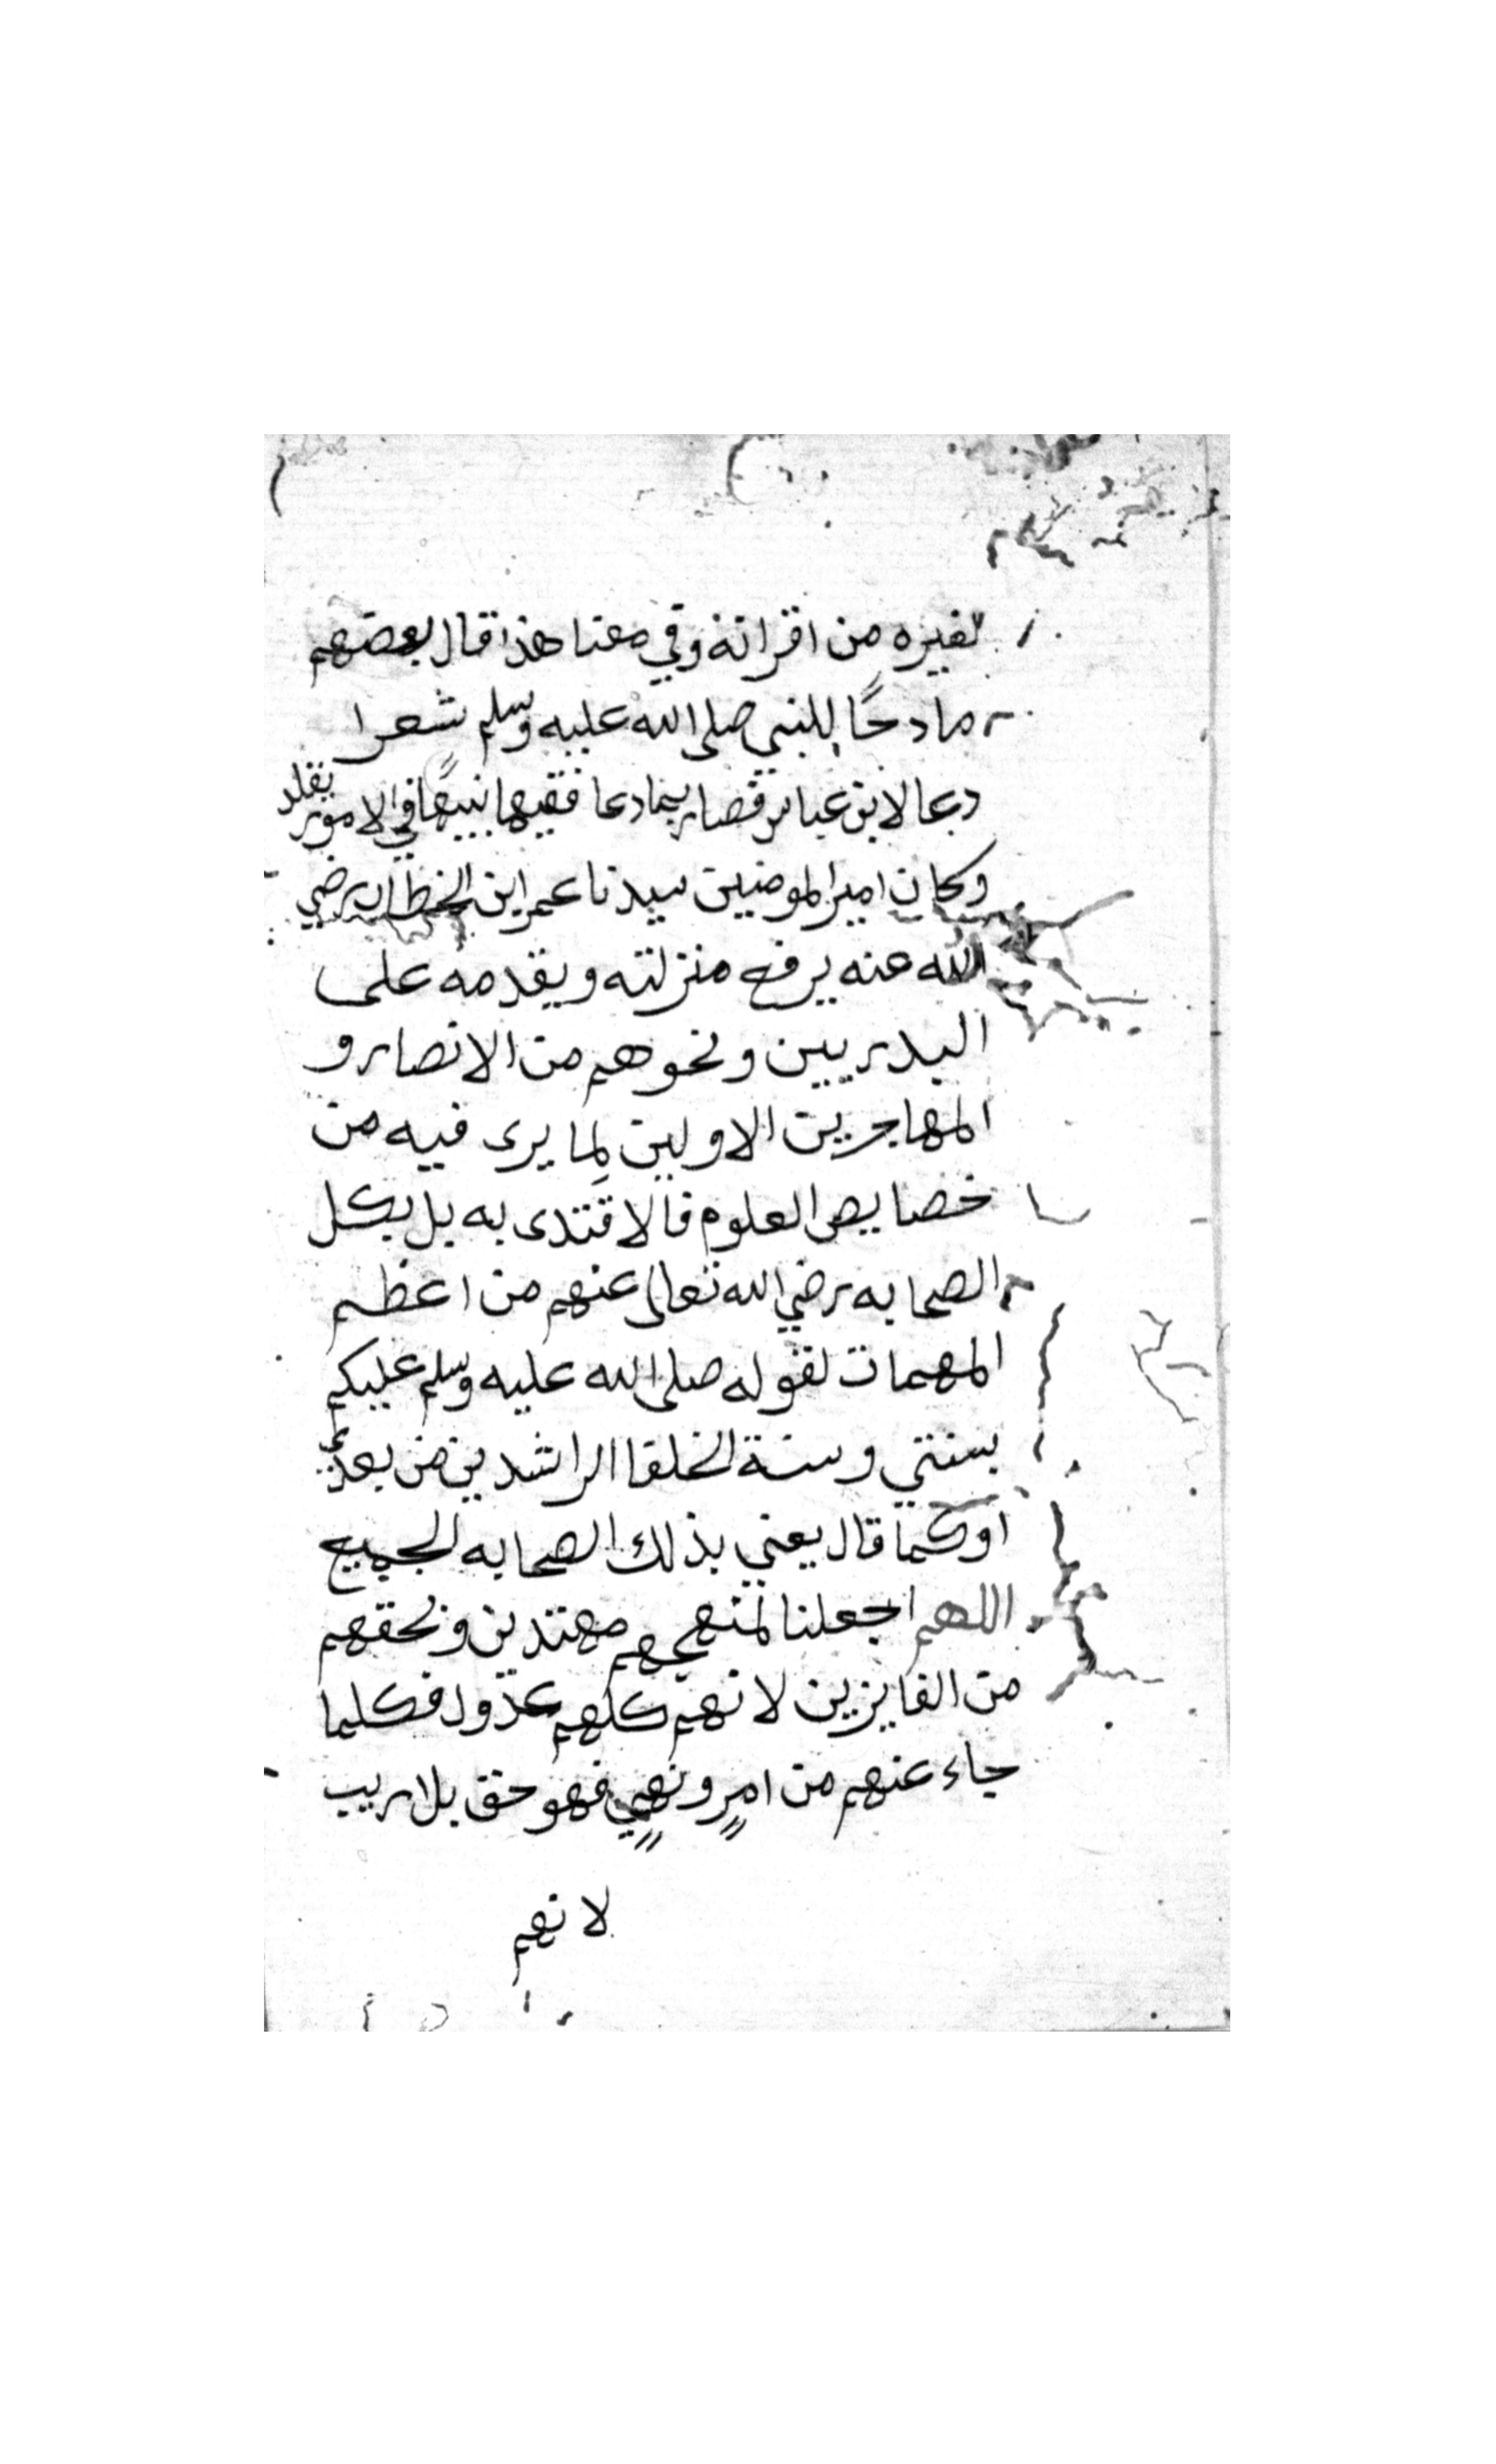 لغيره من اقرانه وفي معنا هذا قال بعضهم
مادحًا للنبي صلى الله عليه وسلم شعرا
دعا لابن عباس فصار بما دعا فقيها نبيهًا في الامور يقلد
وكان امير المومنين سيدنا عمر ابن الخطاب رضي
الله عنه يرفع منزلته ويقدمه على
البدريين ونحوهم من الانصار و
المهاجرين الاولين لِما يرى فيه من
خصايص العلوم فالاقتدى به بل بكل
الصحابه رضي الله تعالى عنهم من اعظم
المهمات لقوله صلى الله عليه وسلم عليكم
بسنتي وسنة الخلفا الراشدين من بعدي
اوكما قال يعني بذلك الصحابه الجميع
اللهم اجعلنا لمنهجهم مهتدين وبحقهم
من الفايزين لانهم كلهم عدول فكلما
جاء عنهم من امرٍ ونهيٍ فهو حق بلا ريب
لانهم